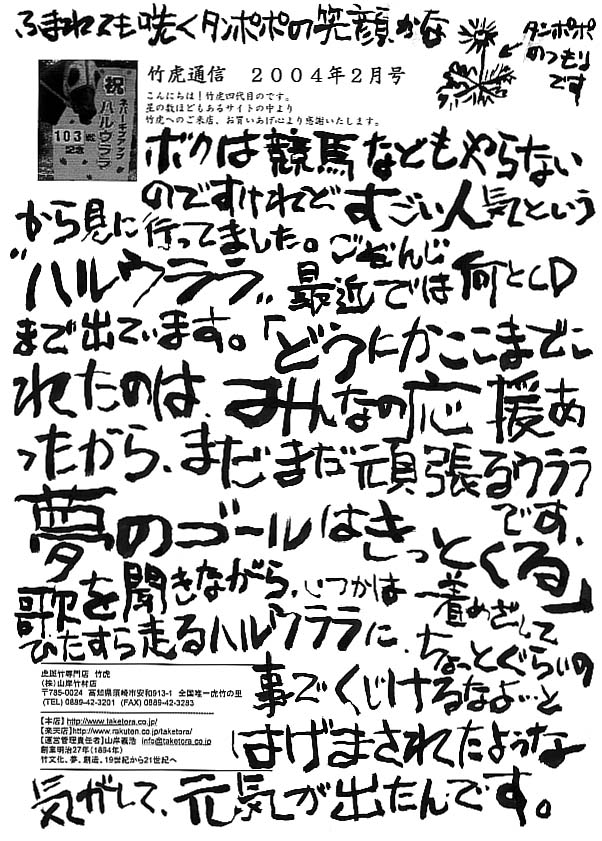 ふまれても咲くタンポポの笑顔かな
タンポポ
のつもり
です
竹虎通信　２００４年２月号
こんにちは！竹虎四代目のです。
星の数ほどもあるサイトの中より
竹虎へのご来店、お買いあげ心より感謝いたします。
祝
ネバーギブアップ
ハルウララ
103戦
記念
ボクは競馬などもやらない
のですけれどすごい人気という
から見に行ってました。ごぞんじ
"ハルウララ"最近では何とCD
まで出ています。「どうにかここまでこ
れたのは、みんなの応援あ
ったから、まだまだ頑張るウララ
です、
夢のゴールはきっとくる」
歌を聞きながら、いつかは一着めざして
ひたすら走るハルウララに、ちょっとぐらいの
事でくじけるなよ…と
はげまされたような
気がして、元気が出たんです。
虎斑竹専門店　竹虎
（株）山岸竹材店
〒785-0024　高知県須崎市安和913-1　全国唯一虎竹の里
(TEL) 0889-42-3201　(FAX) 0889-42-3283
【本店】http://www.taketora.co.jp/
【楽天店】http://www.rakuten.co.jp/taketora/
【運営管理責任者】山岸義浩　info@taketora.co.jp
創業明治27年（1894年）
竹文化、夢、創造、19世紀から21世紀へ